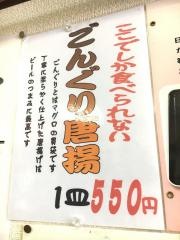 ここでしか食べられない
ごんぐり唐揚
ごんぐりとはマグロの胃袋です
丁寧に柔らかく仕上げた唐揚げは
ビールのつまみに最高です
1皿550円